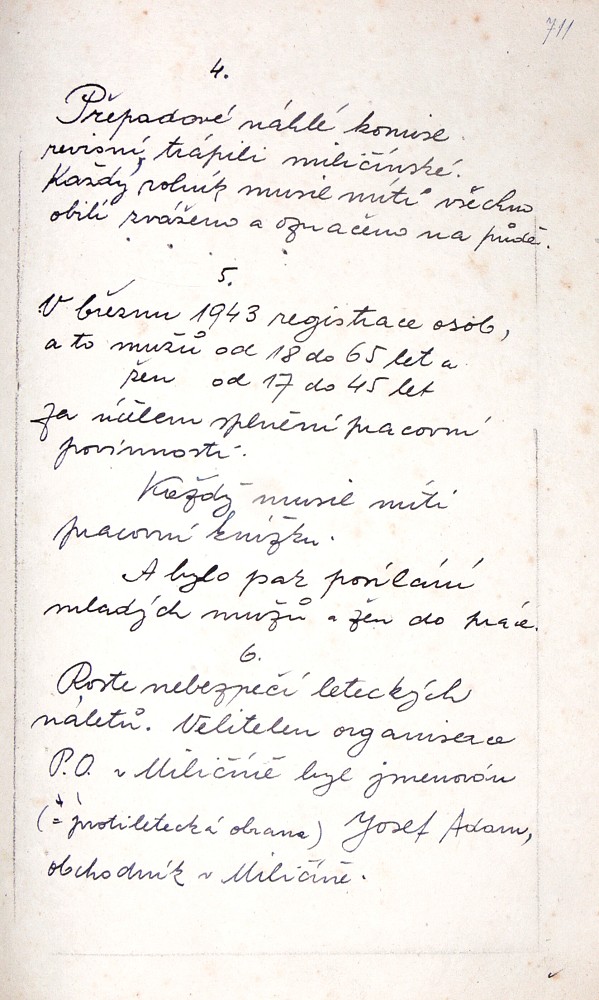 711
4.
Přepadové náhlé komise
revisní, trápili miličínské.
Každý rolník musil míti všechno
obilí zváženo a označeno na půdě.
5.
V březnu 1943 registrace osob,
a to mužů od 18 do 65 let a
žen od 17 do 45 let
za účelem splnění pracovní
povinnosti.
Každý musil míti
pracovní knížku.
A bylo pak posílání
mladých mužů a žen do práce.
6.
Roste nebezpečí leteckých
náletů. Velitelem organisace
P.O. v Miličíně byl jmenován
(= protiletecká obrana) Josef Adam,
obchodník v Miličíně.